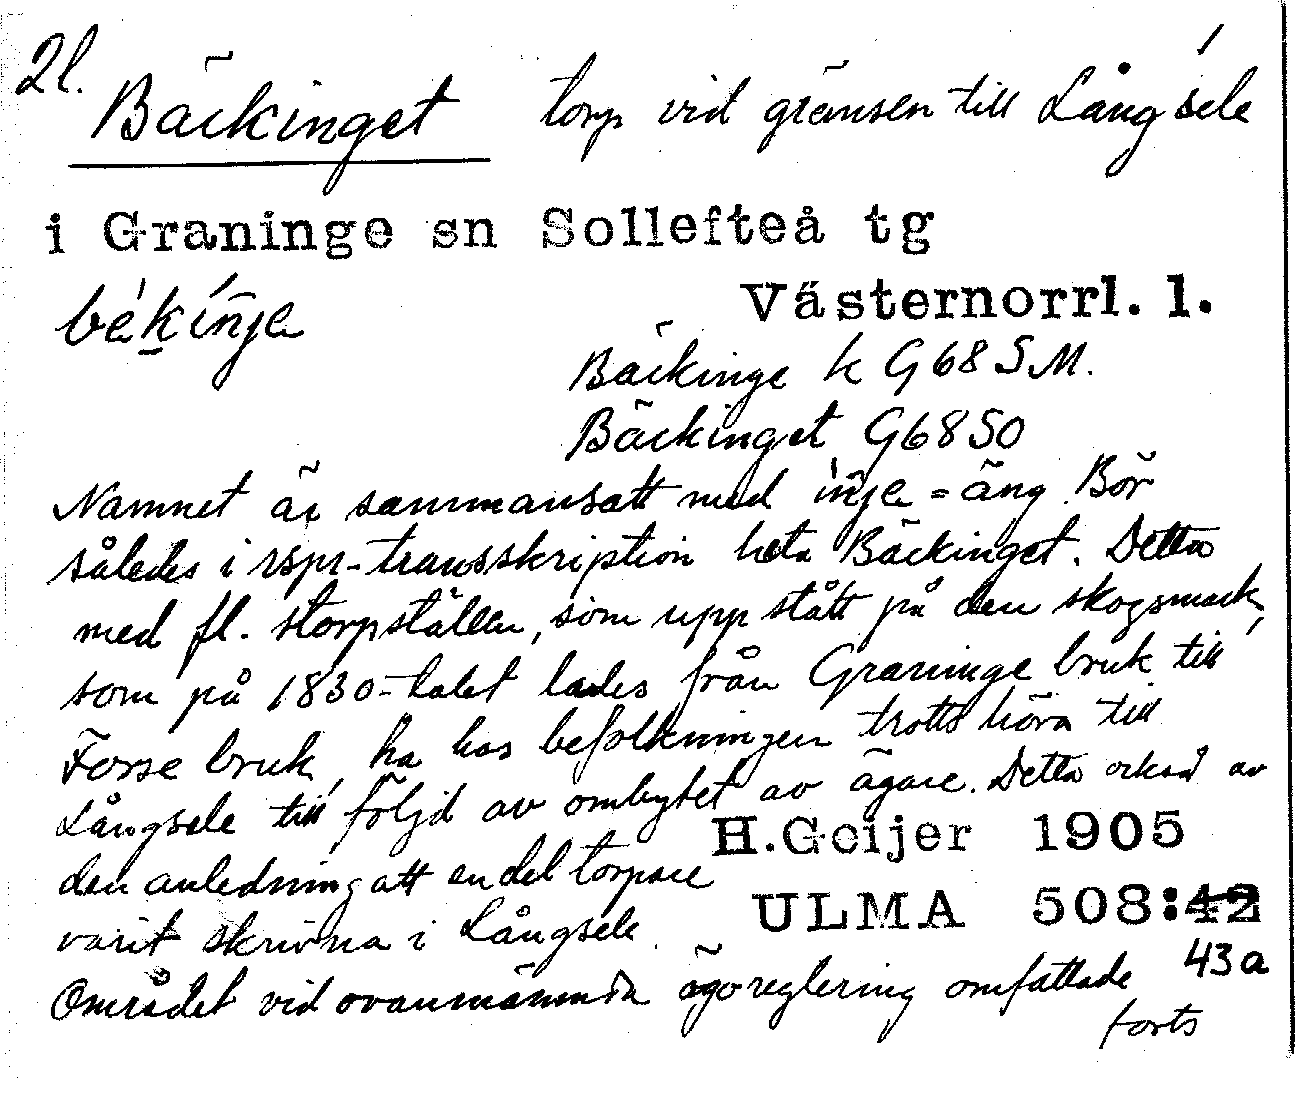 2l.
Bäckinget torp vid gränsen till Långsele
i Graninge sn Sollefteå tg
békínje
Västernorrl. l.
Bäckinge k G68SM.
Bäckinget G68SO
Namnet är sammansatt med inje = äng. Bör
således i rspr-transskription heta Bäckinget. Detta
med fl. torpställen, som uppstått på den skogsmark,
som på 1830-talet lades från Graninge bruk till
Forse bruk, ha hos befolkningen trotts höra till
Långsele till följd av ombytet av ägare. Detta också av
H.Geijer 1905
den anledning att en del torpare
ULMA 508:42
varit skrivna i Långsele.
43a
Området vid ovannämnda ägoreglering omfattade
forts